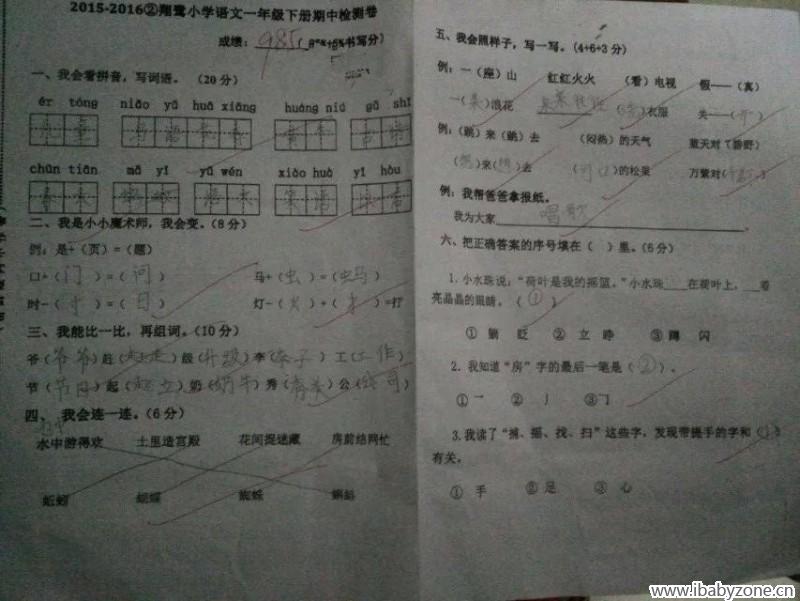 2015-2016②翔鹭小学语文一年级下册期中检测卷
成绩： 98.5 ( +5%书写分)
一、我会看拼音，写词语。（20 分）
ér tóng niǎo yǔ huā xiāng huáng niú gǔ shī
chūn tiān mā yǐ yǔ wén xiào huà yǐ hòu
二、我是小小魔术师，我会变。（8 分）
例：是+（页）=（题）
口+（门）=（问） 马+（虫）=（蚂）
时-（寸）=（日） 灯-（火）+（扌）=打
三、我能比一比，再组词。（10 分）
爷（爷爷）赶（赶走）级（升级）李（李子）工（工作）
节（节日）起（起立）奶（奶牛）秀（清秀）公（公司）
四、 我会连一连。（6 分）
水中游得欢 土里造宫殿 花间捉迷藏 房前结网忙
蚯蚓 蝴蝶 蜘蛛 蝌蚪
五、我会照样子，写一写。（4+6+3 分）
例：一（座）山 红红火火 （看）电视 假——（真）
一（朵）浪花 （洗）衣服 关——（开）
例：（跳）来（跳）去 （闷热）的天气 蓝天对（碧野）
（想）来（想）去 （可口）的松果 万紫对（千红）
例：我帮爸爸拿报纸。
我为大家 唱歌
六、把正确答案的序号填在（ ）里。（6 分）
1.小水珠说："荷叶是我的摇篮。"小水珠___在荷叶上，___着
亮晶晶的眼睛。（①）
① 躺 眨 ② 立 睁 ③ 蹲 闪
2. 我知道"房"字的最后一笔是（②）。
① 一 ② 丿 ③ ㇆
3.我读了"捕、摇、找、扫"这些字，发现带提手的字和（①）
有关。
① 手 ② 足 ③ 心
www.ibabyzone.cn